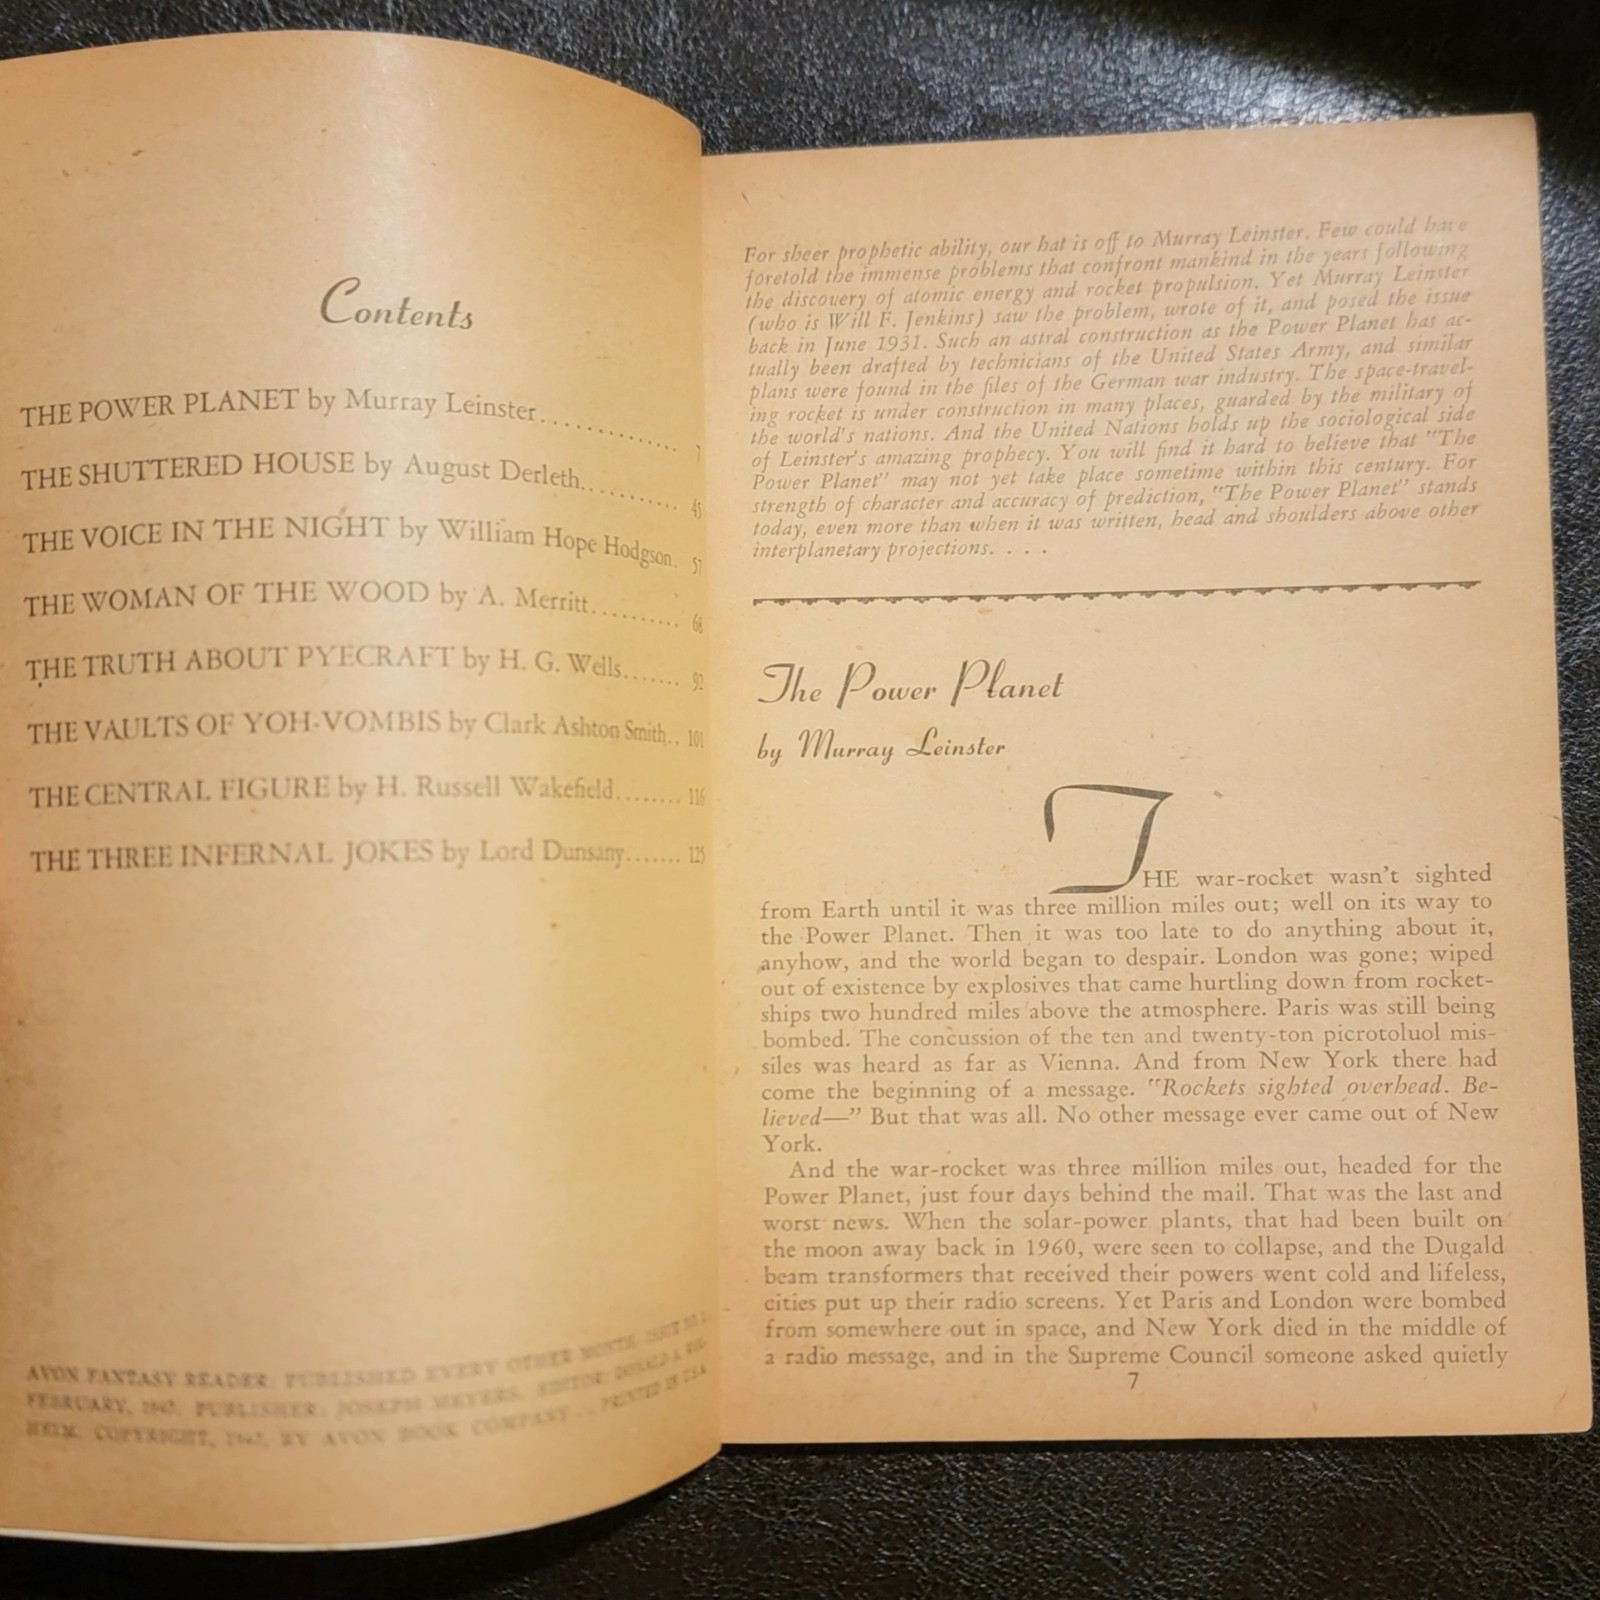 Contents
THE POWER PLANET by Murray Leinster.............. 7
THE SHUTTERED HOUSE by August Derleth.......... 45
THE VOICE IN THE NIGHT by William Hope Hodgson. 57
THE WOMAN OF THE WOOD by A. Merritt.......... 68
THE TRUTH ABOUT PYECRAFT by H. G. Wells....... 92
THE VAULTS OF YOH-VOMBIS by Clark Ashton Smith.. 101
THE CENTRAL FIGURE by H. Russell Wakefield........ 116
THE THREE INFERNAL JOKES by Lord Dunsany....... 125
AVON FANTASY READER: PUBLISHED EVERY OTHER MONTH. ISSUE NO.
FEBRUARY, 1947. PUBLISHER: JOSEPH MEYERS. EDITOR: DONALD A. WOL-
HEIM. COPYRIGHT, 1947, BY AVON BOOK COMPANY . . PRINTED IN USA
For sheer prophetic ability, our hat is off to Murray Leinster. Few could have
foretold the immense problems that confront mankind in the years following
the discovery of atomic energy and rocket propulsion. Yet Murray Leinster
(who is Will F. Jenkins) saw the problem, wrote of it, and posed the issue
back in June 1931. Such an astral construction as the Power Planet has ac-
tually been drafted by technicians of the United States Army, and similar
plans were found in the files of the German war industry. The space-travel-
ing rocket is under construction in many places, guarded by the military of
the world's nations. And the United Nations holds up the sociological side
of Leinster's amazing prophecy. You will find it hard to believe that "The
Power Planet" may not yet take place sometime within this century. For
strength of character and accuracy of prediction, "The Power Planet" stands
today, even more than when it was written, head and shoulders above other
interplanetary projections. . . .
The Power Planet
by Murray Leinster
THE war-rocket wasn't sighted
from Earth until it was three million miles out; well on its way to
the Power Planet. Then it was too late to do anything about it,
anyhow, and the world began to despair. London was gone; wiped
out of existence by explosives that came hurtling down from rocket-
ships two hundred miles above the atmosphere. Paris was still being
bombed. The concussion of the ten and twenty-ton picrotoluol mis-
siles was heard as far as Vienna. And from New York there had
come the beginning of a message. "Rockets sighted overhead. Be-
lieved—" But that was all. No other message ever came out of New
York.
And the war-rocket was three million miles out, headed for the
Power Planet, just four days behind the mail. That was the last and
worst news. When the solar-power plants, that had been built on
the moon away back in 1960, were seen to collapse, and the Dugald
beam transformers that received their powers went cold and lifeless,
cities put up their radio screens. Yet Paris and London were bombed
from somewhere out in space, and New York died in the middle of
a radio message, and in the Supreme Council someone asked quietly
7